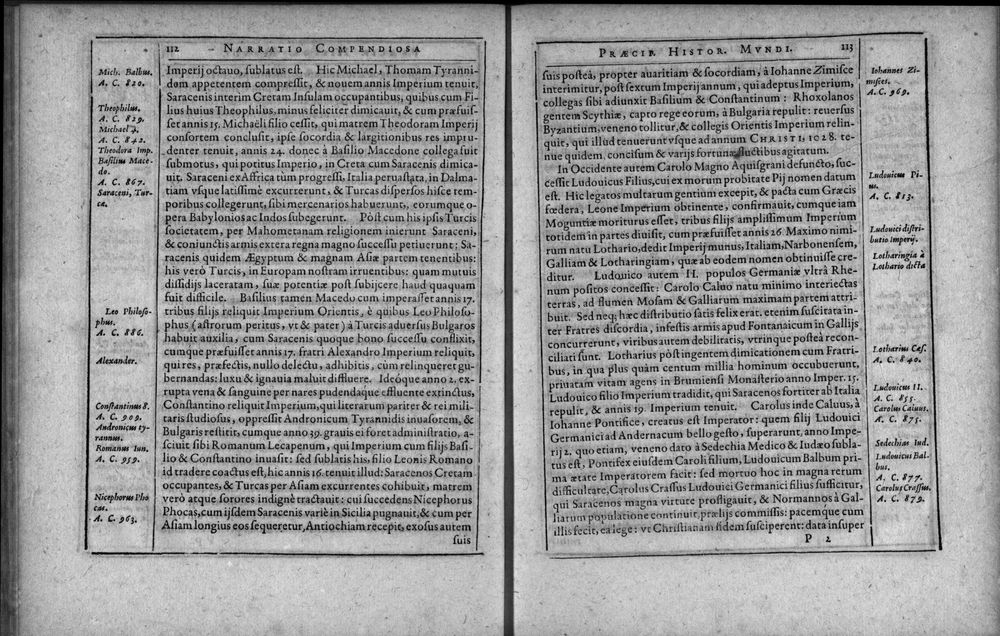 112 NARRATIO COMPENDIOSA
Mich. Balbus.
A. C. 820.
Theophilus.
A. C. 829.
Michael 3.
A. C. 842.
Theodora Imp.
Basilius Mace-
do.
A. C. 867.
Saraceni, Tur-
ca.
Leo Philoso-
phus.
A. C. 886.
Alexander.
Constantinus 8.
A. C. 909.
Andronicus ty-
rannus.
Romanus Iun.
A. C. 959.
Nicephorus Pho
cas.
A. C. 963.
Imperij octauo, sublatus est. Hic Michael, Thomam Tyranni-
dem appetentem compressit, & nouem annis Imperium tenuit,
Saracenis interim Cretam Insulam occupantibus, quibus cum Fi-
lius huius Theophilus, minus feliciter dimicauit, & cum præfuis-
set annis 15. Michaëli filio cessit, qui matrem Theodoram Imperij
consortem conclusit, ipse socordia & largitionibus res impu-
denter tenuit, annis 24. donec à Basilio Macedone collega suit
submotus, qui potitus Imperio, in Creta cum Saracenis dimica-
uit. Saraceni ex Affrica tùm progressi, Italia peruastata, in Dalma-
tiam vsque latissimè excurrerunt, & Turcas dispersos hisce tem-
poribus collegerunt, sibi mercenarios habuerunt, eorumque o-
pera Babylonios ac Indos subegerunt. Pòst cum his ipsis Turcis
societatem, per Mahometanam religionem inierunt Saraceni,
& coniunctis armis extera regna magno successu petiuerunt: Sa-
racenis quidem Ægyptum & magnam Asiæ partem tenentibus:
his verò Turcis, in Europam nostram irruentibus: quam mutuis
dissidijs laceratam, suæ potentiæ post subijcere haud quaquam
fuit difficile. Basilius tamen Macedo cum imperasset annis 17.
tribus filijs reliquit Imperium Orientis, è quibus Leo Philoso-
phus (astrorum peritus, vt & pater) à Turcis aduersus Bulgaros
habuit auxilia, cum Saracenis quoque bono successu conflixit,
cumque præfuisset annis 17. fratri Alexandro Imperium reliquit,
qui res, præfectis, nullo delectu, adhibitis, cùm relinqueret gu-
bernandas: luxu & ignauia maluit diffluere. Ideóque anno 2. ex-
rupta vena & sanguine per nares pudendaque effluente exstinctus,
Constantino reliquit Imperium, qui literarum pariter & rei mili-
taris studiosus, oppressit Andronicum Tyrannidis inuasorem, &
Bulgaris restitit, cumque anno 39. grauis ei foret administratio, a-
sciuit sibi Romanum Lecapenum, qui Imperium cum filijs Basi-
lio & Constantino inuasit: sed sublatis his, filio Leonis Romano
id tradere coactus est, hic annis 16. tenuit illud: Saracenos Cretam
occupantes, & Turcas per Asiam excurrentes cohibuit, matrem
verò atque sorores indignè tractauit: cui succedens Nicephorus
Phocas, cum ijsdem Saracenis variè in Sicilia pugnauit, & cum per
Asiam longius eos sequeretur, Antiochiam recepit, exosus autem
suis
PRÆCIP. HISTOR. MVNDI. 113
suis posteà, propter auaritiam & socordiam, à Iohanne Zimisce
interimitur, post sextum Imperij annum, qui adeptus Imperium,
collegas sibi adiunxit Basilium & Constantinum: Rhoxolanos
gentem Scythiæ, capto rege eorum, à Bulgaria repulit: reuersus
Byzantium, veneno tollitur, & collegis Orientis Imperium relin-
quit, qui illud tenuerunt vsque ad annum CHRISTI, 1028. te-
nue quidem, concisum & varijs fortunæ fluctibus agitatum.
In Occidente autem Carolo Magno Aquisgrani defuncto, suc-
cessit Ludouicus Filius, cui ex morum probitate Pij nomen datum
est. Hic legatos multarum gentium excepit, & pacta cum Græcis
fœdera, Leone Imperium obtinente, confirmauit, cumque iam
Moguntiæ moriturus esset, tribus filijs amplissimum Imperium
totidem in partes diuisit, cum præfuisset annis 26. Maximo nimi-
rum natu Lothario, dedit Imperij munus, Italiam, Narbonensem,
Galliam & Lotharingiam, quæ ab eodem nomen obtinuisse cre-
ditur. Ludouico autem II. populos Germaniæ vltrà Rhe-
num positos concessit: Carolo Caluo natu minimo interiectas
terras, ad flumen Mosam & Galliarum maximam partem attri-
buit. Sed neque hæc distributio satis felix erat. etenim suscitata in-
ter Fratres discordia, infestis armis apud Fontanaicum in Gallijs
concurrerunt, viribus autem debilitatis, vtrinque posteà recon-
ciliati sunt. Lotharius pòst ingentem dimicationem cum Fratri-
bus, in qua plus quàm centum millia hominum occubuerunt,
priuatam vitam agens in Brumiensi Monasterio anno Imper. 15.
Ludouico filio Imperium tradidit, qui Saracenos fortiter ab Italia
repulit, & annis 19. Imperium tenuit. Carolus inde Caluus, à
Iohanne Pontifice, creatus est Imperator: quem filij Ludouici
Germanici ad Andernacum bello gesto, superarunt, anno Impe-
rij 2. quo etiam, veneno dato à Sedechia Medico & Iudæo subla-
tus est, Pontifex eiusdem Caroli filium, Ludouicum Balbum pri-
ma ætate Imperatorem facit: sed mortuo hoc in magna rerum
difficultate, Carolus Crassus Ludouici Germanici filius sufficitur,
qui Saracenos magna virtute profligauit, & Normannos à Gal-
liarum populatione continuit, prælijs commissis: pacemque cum
illis fecit, ea lege: vt Christianam fidem susciperent: data insuper
P 2
Iohannes Zi-
misces.
A. C. 969.
Ludouicus Pi-
us.
A. C. 813.
Ludouici distri-
butio Imperij.
Lotharingia à
Lothario dicta
Lotharius Cæs.
A. C. 840.
Ludouicus II.
A. C. 855.
Carolus Caluus.
A. C. 875.
Sedechias Iud.
Ludouicus Bal-
bus.
A. C. 877.
Carolus Crassus.
A. C. 879.